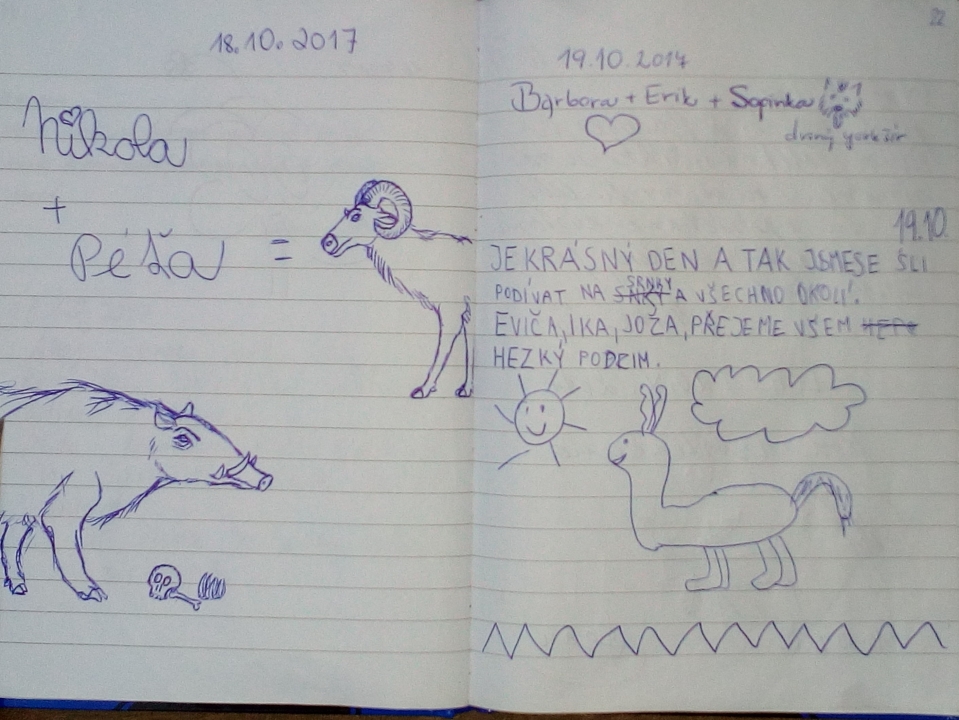 18.10.2017
Nikola
+
Péťa =
22
19.10.2017
Barbora + Erik + Sapinka
dravý yorkšír
19.10.
JE KRÁSNÝ DEN A TAK JSMESE ŠLI
PODÍVAT NA SRNKY A VŠECHNO OKOLÍ.
EVIČA, IKA, JOŽA, PŘEJEME VŠEM
HEZKÝ PODZIM.